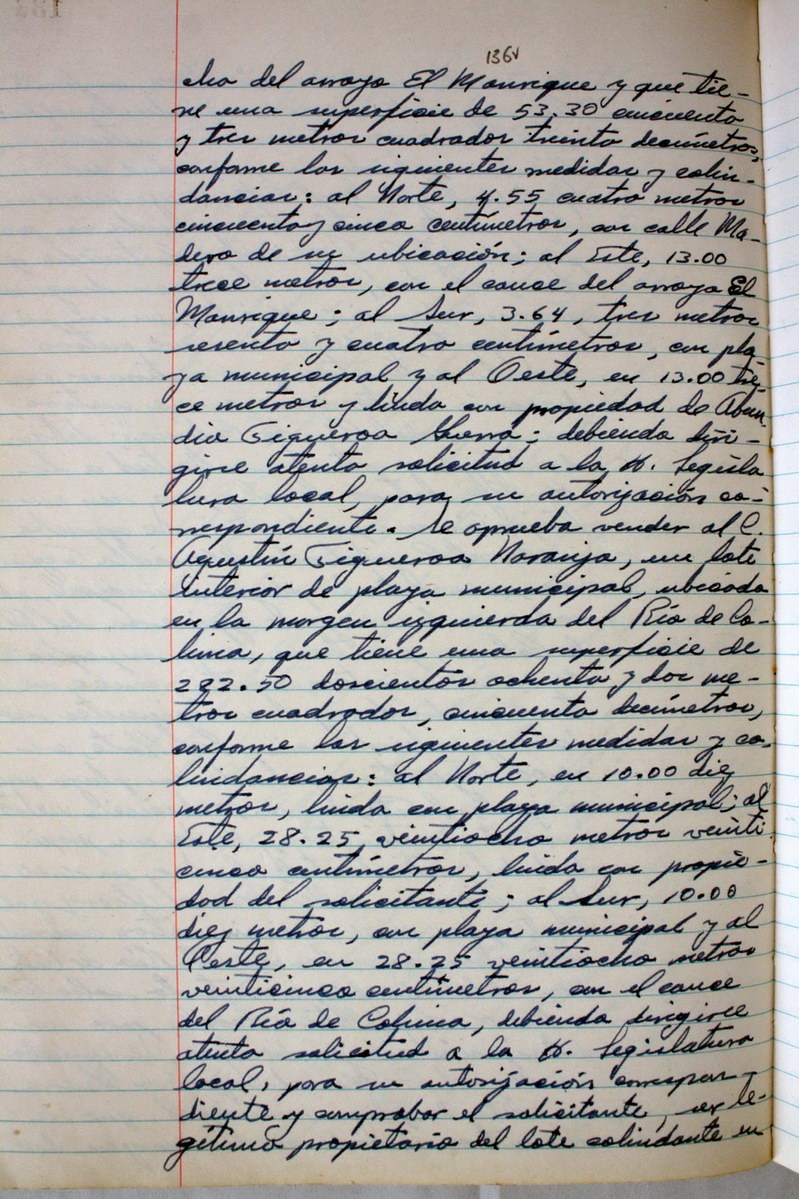 136v
cha del arroyo El Manrique y que tie-
ne una superficie de 53.30 cincuenta
y tres metros cuadrados treinta decímetros,
conforme las siguientes medidas y colin-
dancias: al Norte, 4.55 cuatro metros
cincuenta y cinco centímetros, con calle Ma-
dero de su ubicación; al Este, 13.00
trece metros, con el cauce del arroyo El
Manrique; al Sur, 3.64, tres metros
sesenta y cuatro centímetros, con pla-
ya municipal y al Oeste, en 13.00 tre-
ce metros y linda con propiedad de Abun
dio Figueroa Guerra; debiendo diri-
girse atenta solicitud a la H. Legisla
tura local, para su autorización co-
rrespondiente. Se aprueba vender al C.
Agustín Figueroa Naranjo, un lote
interior de playa municipal, ubicado
en la margen izquierda del Río de Co-
lima, que tiene una superficie de
282.50 doscientos ochenta y dos me-
tros cuadrados, cincuenta decímetros,
conforme las siguientes medidas y co-
lindancias: al Norte, en 10.00 diez
metros, linda con playa municipal; al
Este, 28.25 veintiocho metros veinti
cinco centímetros, linda con propie-
dad del solicitante; al Sur, 10.00
diez metros, con playa municipal y al
Oeste, en 28.25 veintiocho metros
veinticinco centímetros, con el cauce
del Río de Colima, debiendo dirigirse
atenta solicitud a la H. Legislatura
local, para su autorización correspon-
diente y comprobar el solicitante, ser le-
gítimo propietario del lote colindante en